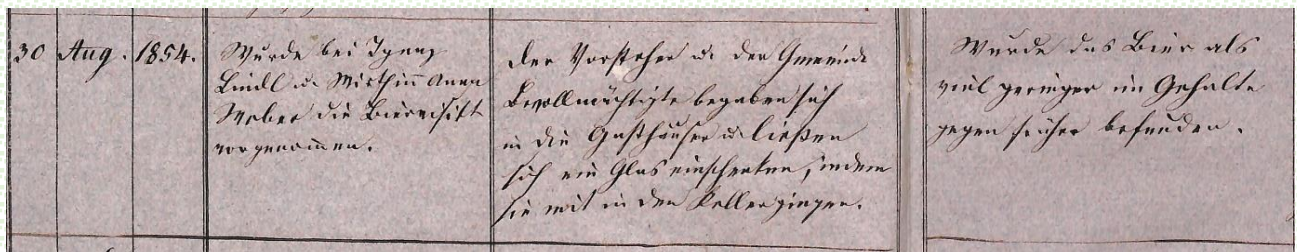 30 Aug. 1854.
Wurde bei Ignaz
Lindl u. Wirthin̄ Anna
Weber die Biervisitt
vorgenom̄en.
Der Vorsteher u. der Gmeinde
Bevollmächtigte begaben sich
in die Gasthäuser u. ließen
sich ein Glas einschenken, indem
sie mit in den Keller gingen.
Wurde das Bier als
viel geringer im Gehalte
gegen früher befunden.